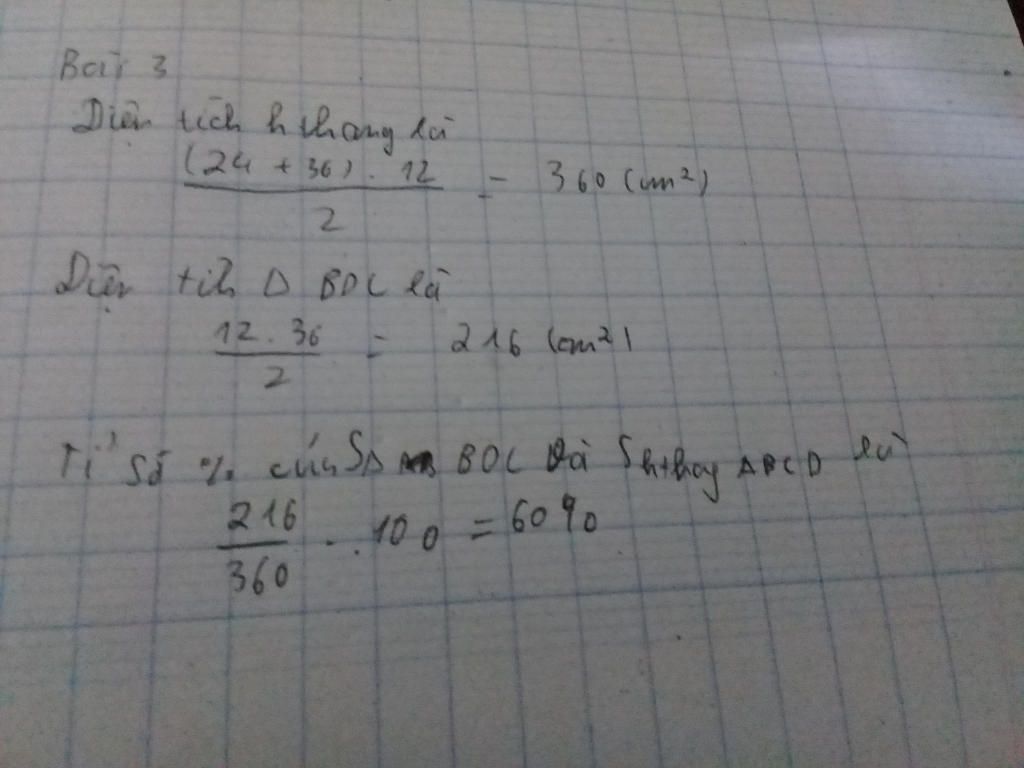 Bài 3
Diện tích h thang là
(24 + 36) . 12
2
= 360 (cm²)
Diện tích Δ BDC là
12 . 36
2
= 216 (cm²)
Tỉ số % của SΔ BDC và Sh thang ABCD là
216
360
. 100 = 60%